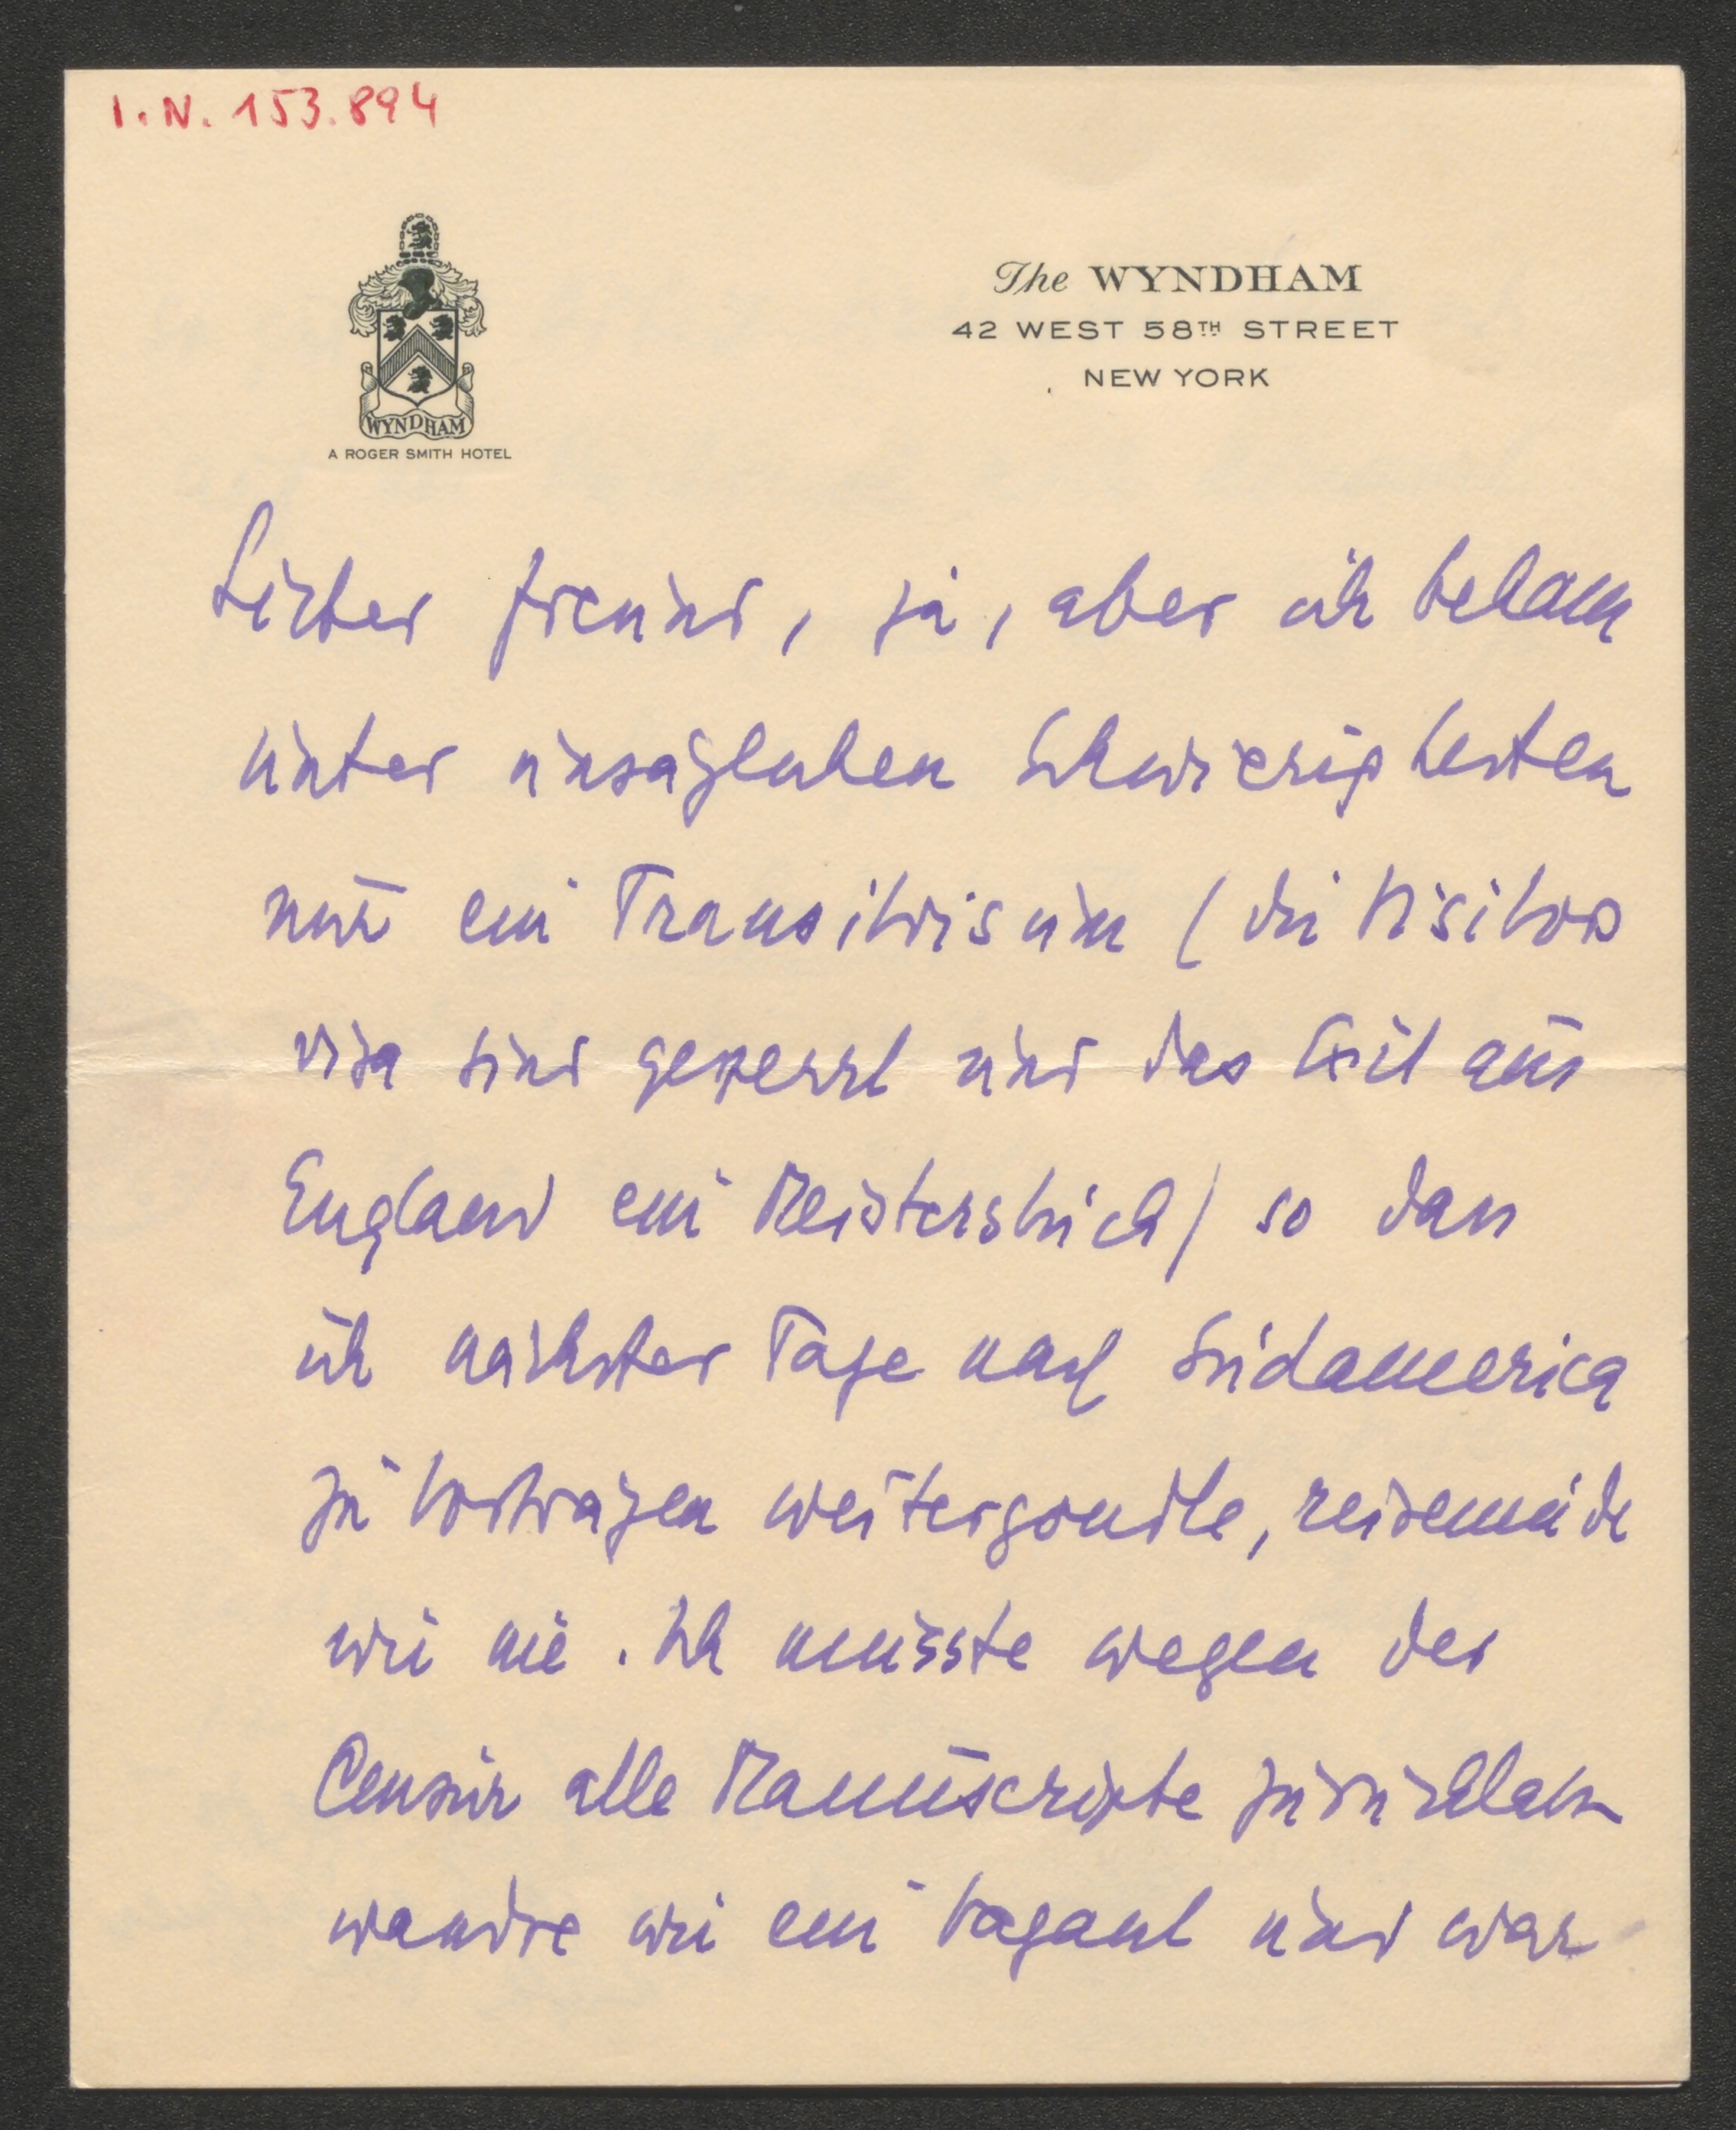 I.N. 153.894
WYNDHAM
A ROGER SMITH HOTEL
The WYNDHAM
42 WEST 58TH STREET
NEW YORK
Lieber Freund, ja, aber ich bekam
unter unsäglichen Schwierigkeiten
nur ein Transitvisum (die Visitors
visa sind gesperrt und das Exit aus
England ein Meisterstück) so dass
ich nächster Tage nach Südamerica
zu Vorträgen weitergondle, reisemüde
wie nie. Ich musste wegen der
Censur alle Manuscripte zurücklassen
wandre wie ein Vagant und war